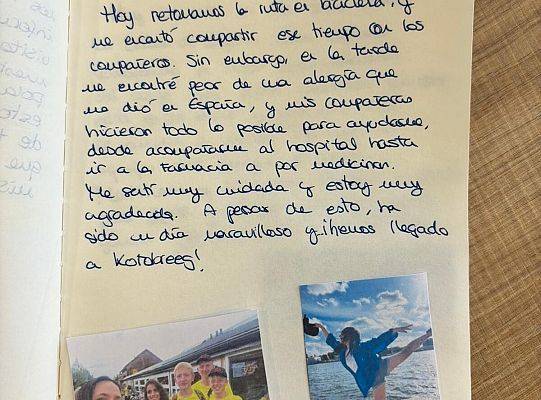 Hoy retomamos la ruta en bicicleta, y
me encantó compartir ese tiempo con los
compañeros. Sin embargo, en la tarde
me encontré peor de una alergia que
me dió en España, y mis compañeros
hicieron todo lo posible para ayudarme,
desde acompañarme al hospital hasta
ir a la farmacia a por medicinas.
Me sentí muy cuidada y estoy muy
agradecida. A pesar de esto, ha
sido un día maravilloso y ¡hemos llegado
a